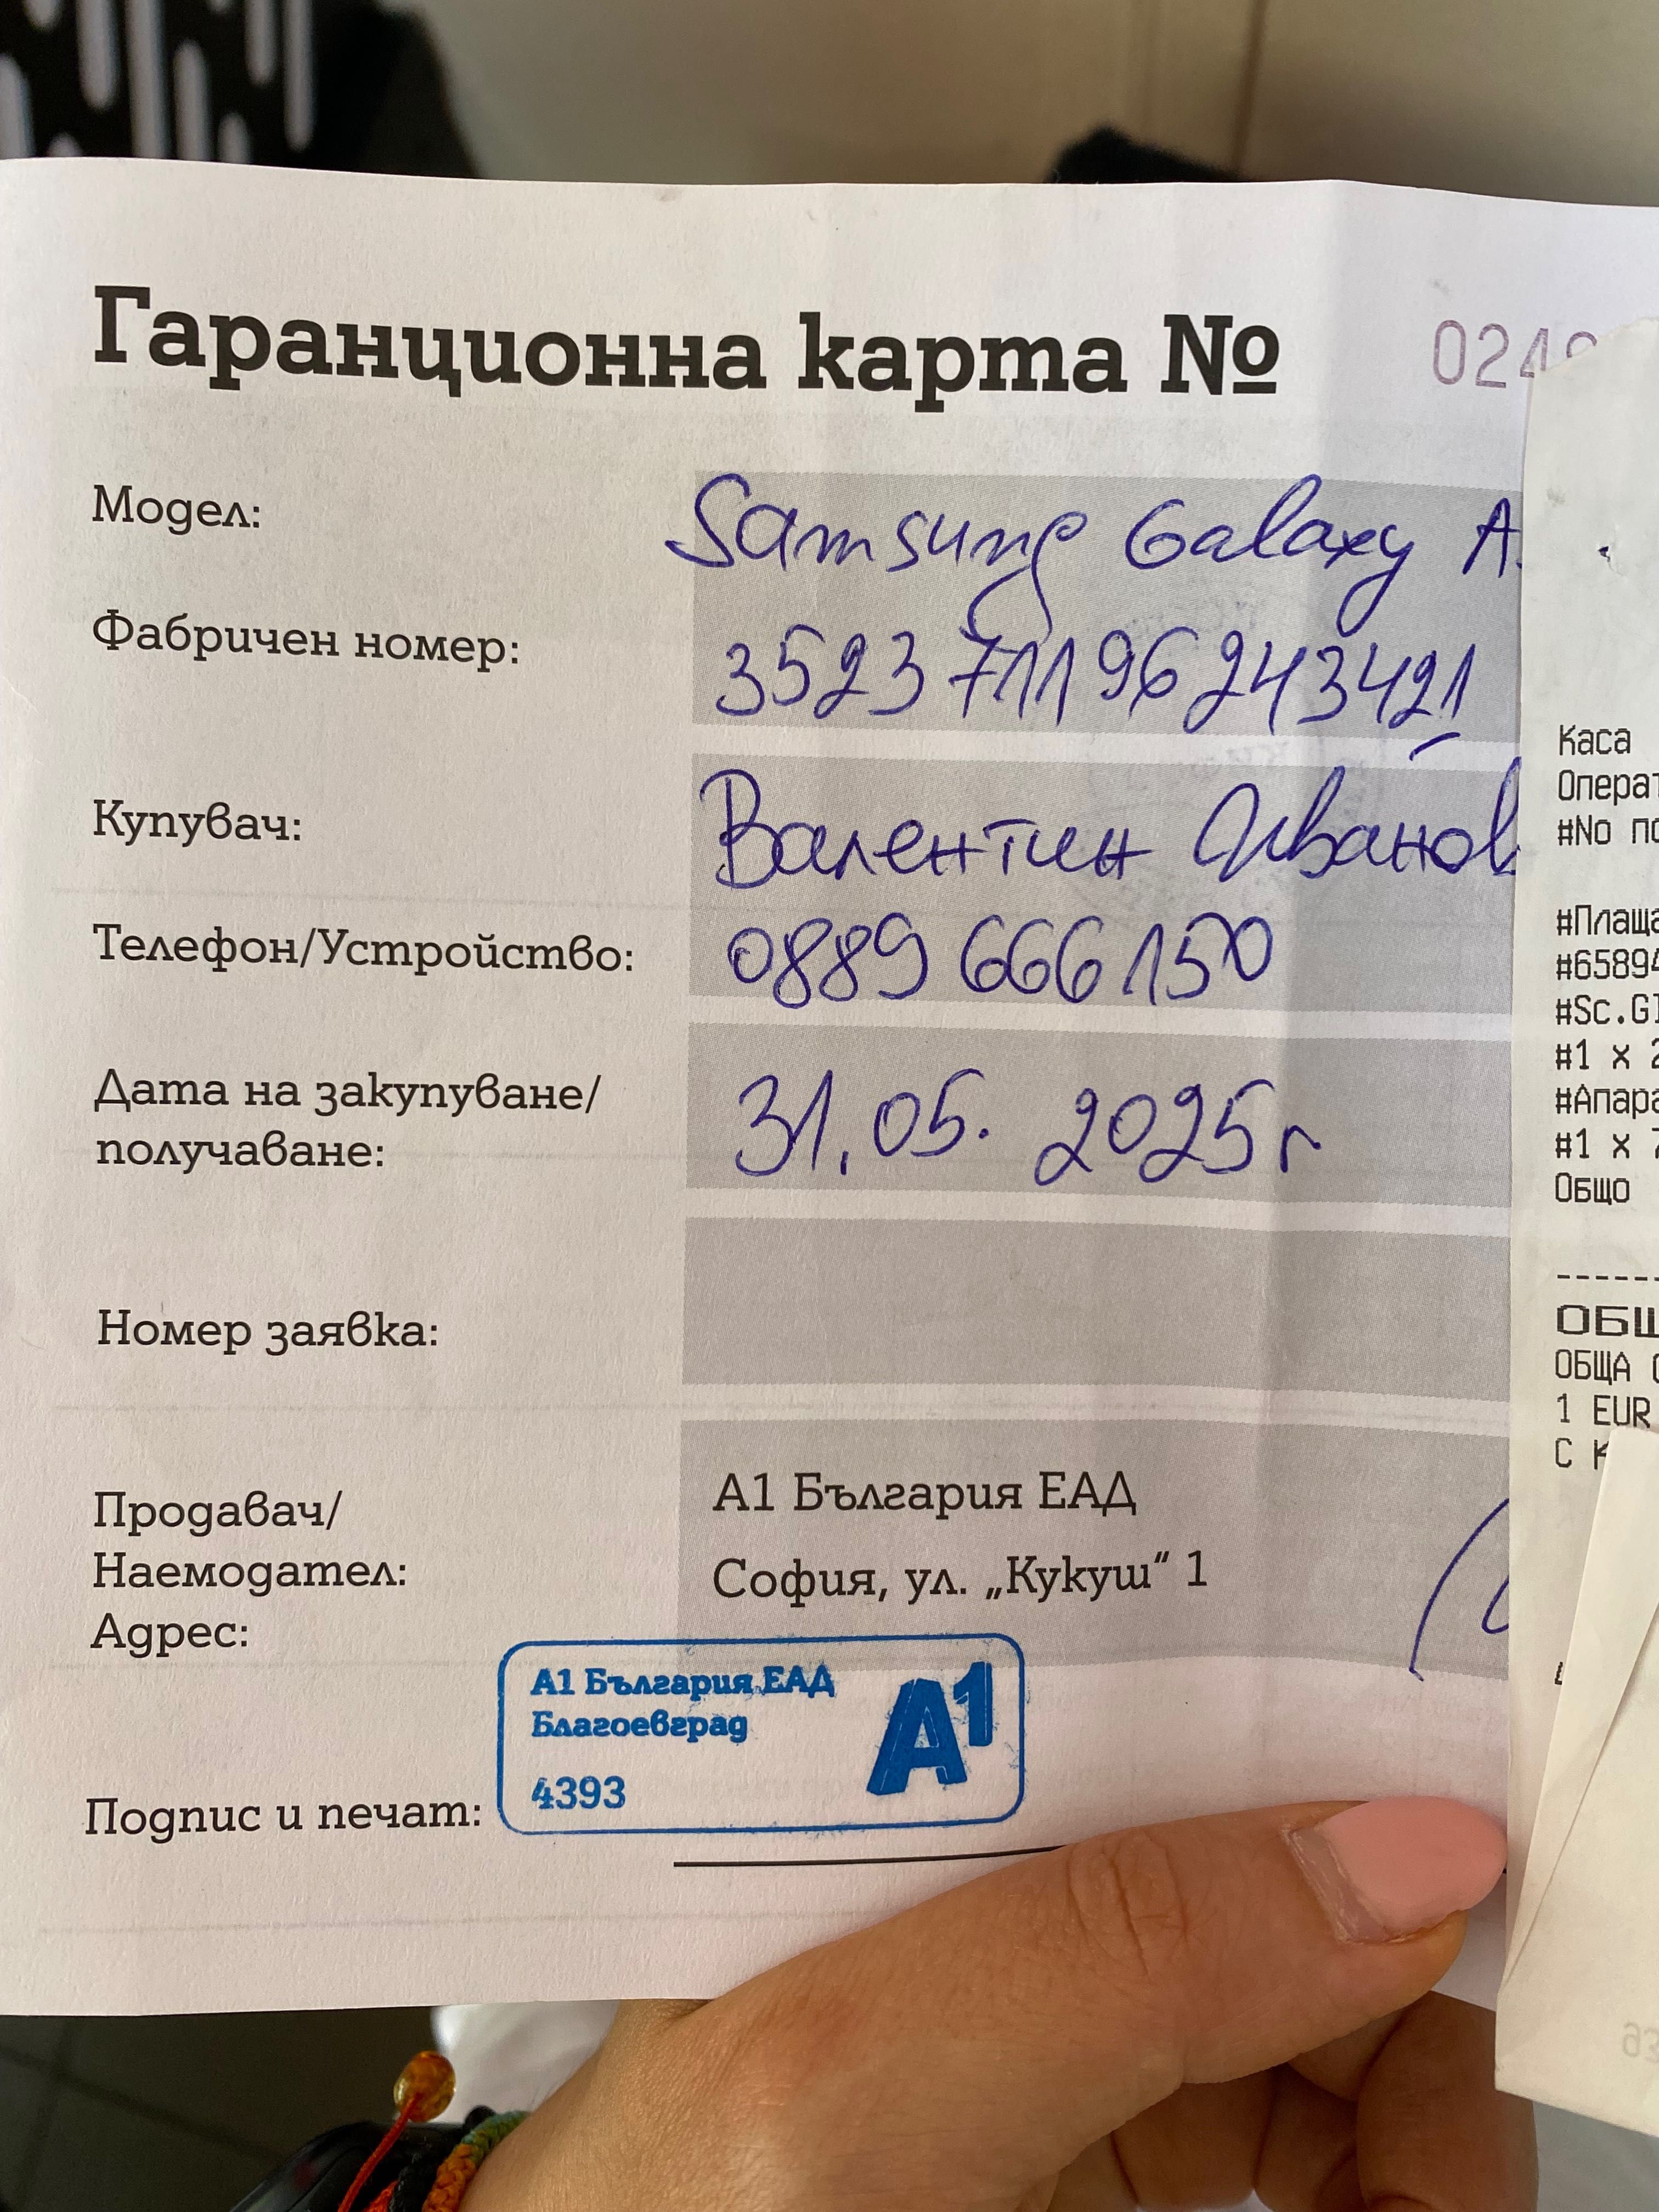 Гаранционна карта № 024
Модел: Samsung Galaxy A
Фабричен номер: 352371196243421
Купувач: Валентин Иванов
Телефон/Устройство: 0889 666 150
Дата на закупуване/
получаване: 31.05. 2025 г
Номер заявка:
Продавач/
Наемодател:
Адрес:
А1 България ЕАД
София, ул. „Кукуш“ 1
А1 България ЕАД
Благоевград
4393
A1
Подпис и печат:
Каса
#No
#65894
#1 x
#1 x
Общо
ОБЩА
1 EUR
С